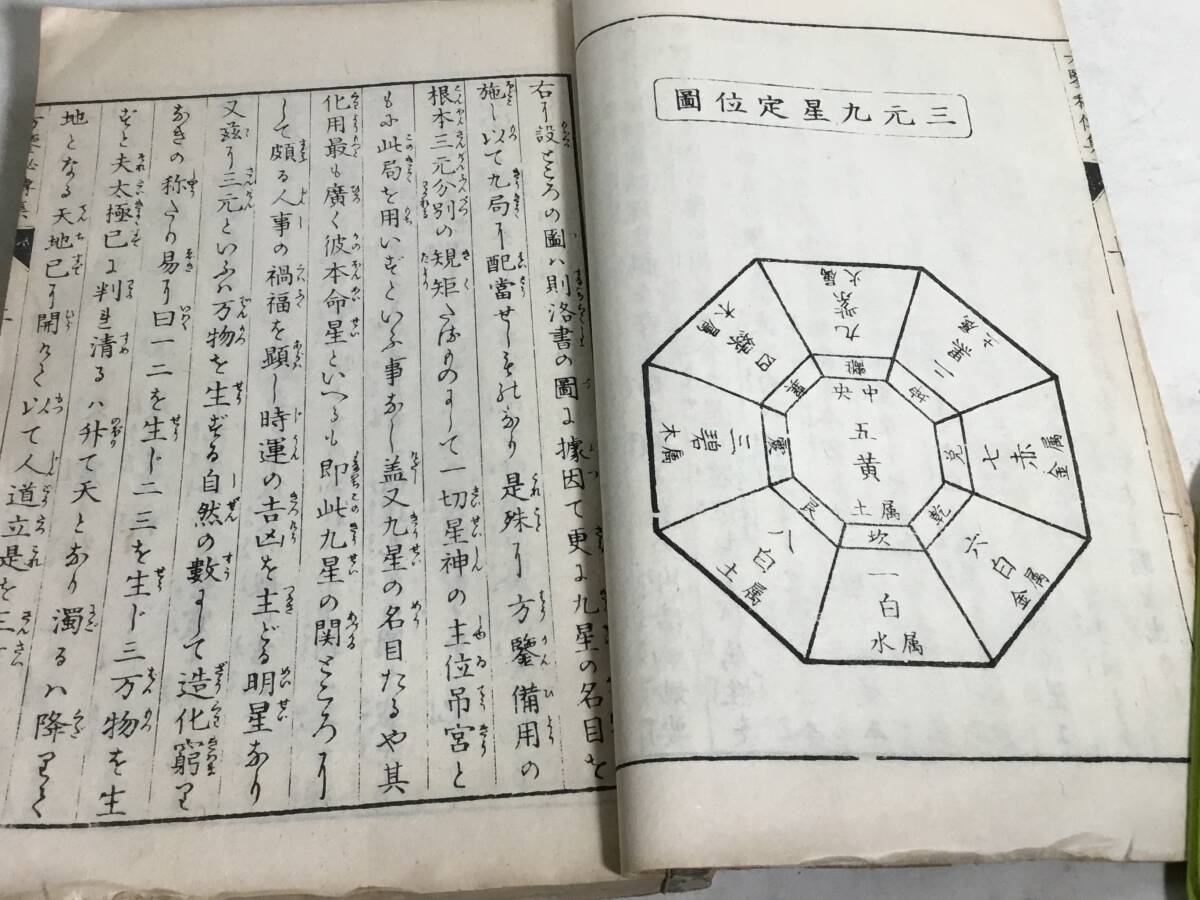 三元九星定位圖
九紫
火属
離
二黒
土属
坤
七赤
金属
兌
六白
金属
乾
一白
水属
坎
八白
土属
艮
三碧
木属
震
四緑
木属
巽
中央
五黄
土属
右に設ところの圖ハ則洛書の圖に據因て更に九星の名目を
施し以て九局に配當せしものなり是殊に方鑒備用の
根本三元分別の規矩たるものにして一切星神の主位吊宮と
もに此局を用いずといふ事なし盖又九星の名目たるや其
化用最も廣く彼本命星といへるも即此九星の関ところに
して頗る人事の禍福を顕し時運の吉凶を主どる明星なり
又茲に三元といふハ万物を生ずる自然の數にして造化窮り
なきの称なり易に曰一二を生じ二三を生じ三万物を生
ずと夫太極已に判れ清るハ升て天となり濁るハ降りて
地となる天地已に開けて以て人道立是を三